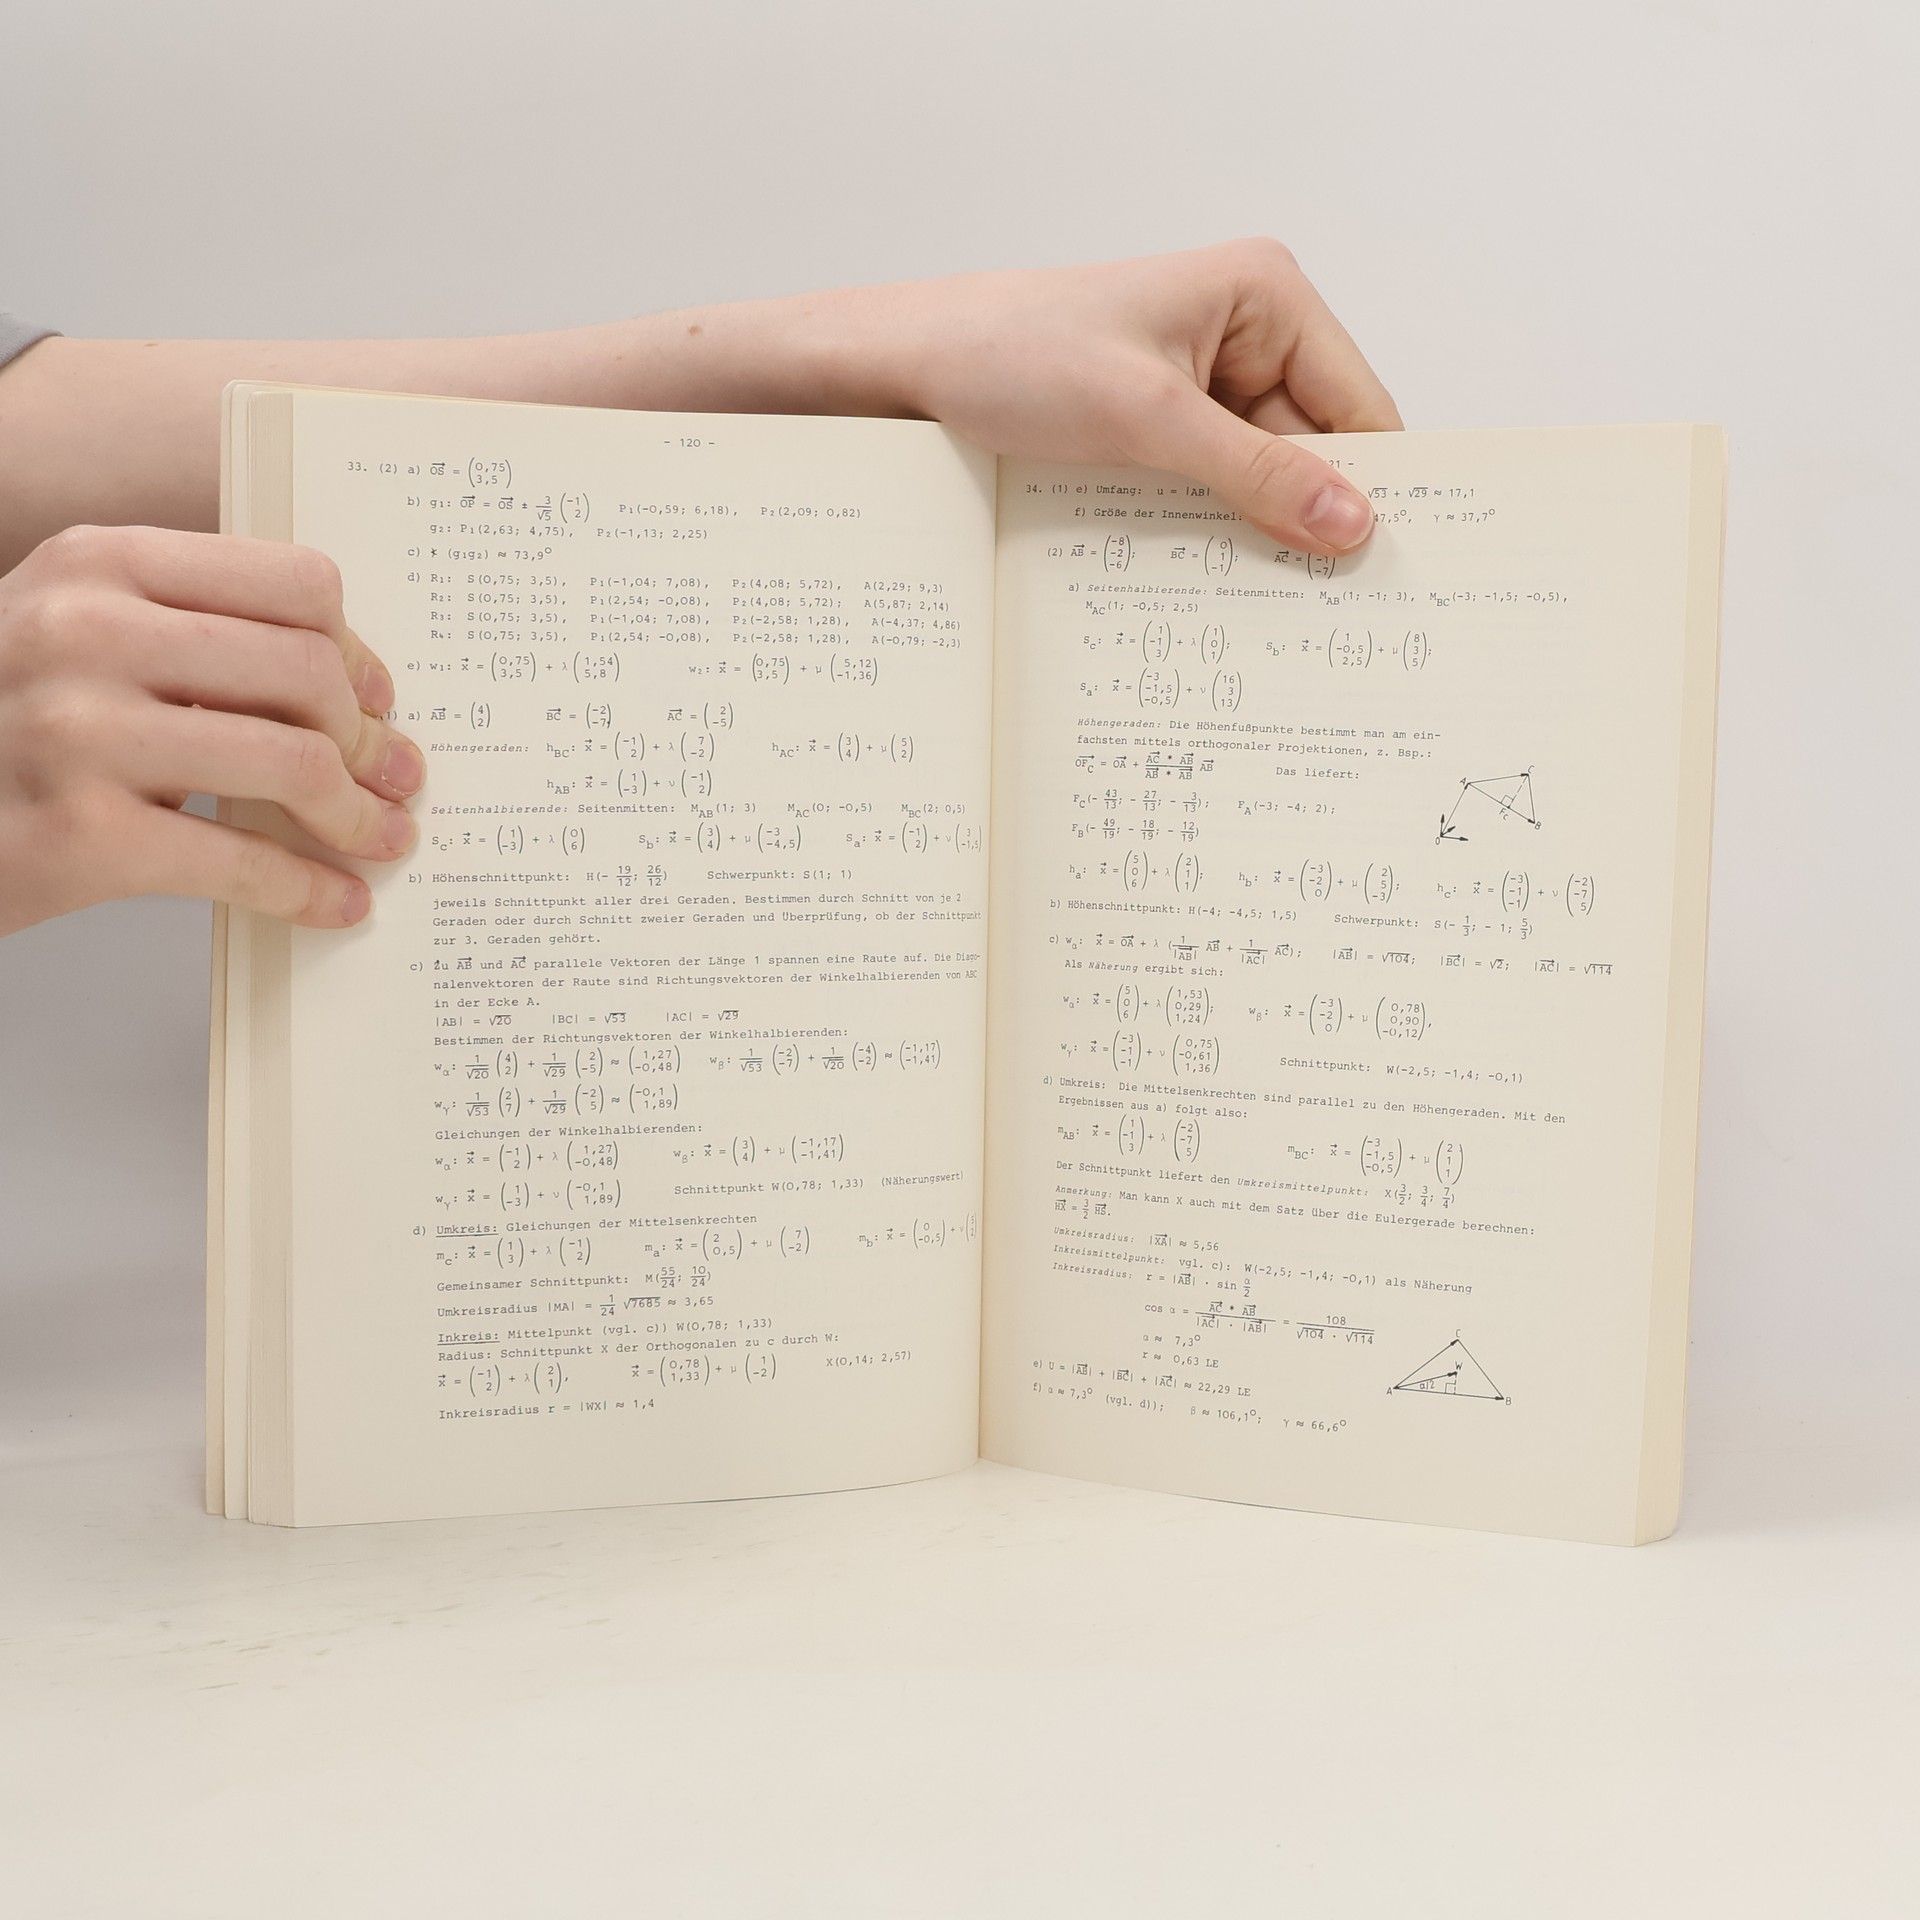 - 120 -
33. (2) a) OS⃗ = (0,75 / 3,5)
b) g₁: OP⃗ = OS⃗ ± 3/√5 (-1 / 2) P₁(-0,59; 6,18), P₂(2,09; 0,82)
g₂: P₁(2,63; 4,75), P₂(-1,13; 2,25)
c) ∢ (g₁g₂) ≈ 73,9°
d) R₁: S(0,75; 3,5), P₁(-1,04; 7,08), P₂(4,08; 5,72), A(2,29; 9,3)
R₂: S(0,75; 3,5), P₁(2,54; -0,08), P₂(4,08; 5,72); A(5,87; 2,14)
R₃: S(0,75; 3,5), P₁(-1,04; 7,08), P₂(-2,58; 1,28), A(-4,37; 4,86)
R₄: S(0,75; 3,5), P₁(2,54; -0,08), P₂(-2,58; 1,28), A(-0,79; -2,3)
e) w₁: x⃗ = (0,75 / 3,5) + λ (1,54 / 5,8) w₂: x⃗ = (0,75 / 3,5) + μ (5,12 / -1,36)
1) a) AB⃗ = (4 / 2) BC⃗ = (-2 / -7) AC⃗ = (2 / -5)
Höhengeraden: h_BC: x⃗ = (-1 / 2) + λ (7 / -2) h_AC: x⃗ = (3 / 4) + μ (5 / 2)
h_AB: x⃗ = (1 / -3) + ν (-1 / 2)
Seitenhalbierende: Seitenmitten: M_AB(1; 3) M_AC(0; -0,5) M_BC(2; 0,5)
S_c: x⃗ = (1 / -3) + λ (0 / 6) S_b: x⃗ = (3 / 4) + μ (-3 / -4,5) S_a: x⃗ = (-1 / 2) + ν (3 / -1,5)
b) Höhenschnittpunkt: H(- 19/12; 26/12) Schwerpunkt: S(1; 1)
jeweils Schnittpunkt aller drei Geraden. Bestimmen durch Schnitt von je 2
Geraden oder durch Schnitt zweier Geraden und Überprüfung, ob der Schnittpunkt
zur 3. Geraden gehört.
c) Zu AB⃗ und AC⃗ parallele Vektoren der Länge 1 spannen eine Raute auf. Die Diago-
nalenvektoren der Raute sind Richtungsvektoren der Winkelhalbierenden von ABC
in der Ecke A.
|AB| = √20 |BC| = √53 |AC| = √29
Bestimmen der Richtungsvektoren der Winkelhalbierenden:
w_α: 1/√20 (4 / 2) + 1/√29 (2 / -5) ≈ (1,27 / -0,48) w_β: 1/√53 (-2 / -7) + 1/√20 (-4 / -2) ≈ (-1,17 / -1,41)
w_γ: 1/√53 (2 / 7) + 1/√29 (-2 / 5) ≈ (-0,1 / 1,89)
Gleichungen der Winkelhalbierenden:
w_α: x⃗ = (-1 / 2) + λ (1,27 / -0,48) w_β: x⃗ = (3 / 4) + μ (-1,17 / -1,41)
w_γ: x⃗ = (1 / -3) + ν (-0,1 / 1,89) Schnittpunkt W(0,78; 1,33) (Näherungswert)
d) Umkreis: Gleichungen der Mittelsenkrechten
m_c: x⃗ = (1 / 3) + λ (-1 / 2) m_a: x⃗ = (2 / 0,5) + μ (7 / -2) m_b: x⃗ = (0 / -0,5) + ν (5 / 2)
Gemeinsamer Schnittpunkt: M(55/24; 10/24)
Umkreisradius |MA| = 1/24 √7685 ≈ 3,65
Inkreis: Mittelpunkt (vgl. c)) W(0,78; 1,33)
Radius: Schnittpunkt X der Orthogonalen zu c durch W:
x⃗ = (-1 / 2) + λ (2 / 1), x⃗ = (0,78 / 1,33) + μ (1 / -2) X(0,14; 2,57)
Inkreisradius r = |WX| ≈ 1,4
21 -
34. (1) e) Umfang: u = |AB| √53 + √29 ≈ 17,1
f) Größe der Innenwinkel: 47,5°, γ ≈ 37,7°
(2) AB⃗ = (-8 / -2 / -6); BC⃗ = (0 / 1 / -1); AC⃗ = (-1 / -7)
a) Seitenhalbierende: Seitenmitten: M_AB(1; -1; 3), M_BC(-3; -1,5; -0,5),
M_AC(1; -0,5; 2,5)
S_c: x⃗ = (1 / -1 / 3) + λ (1 / 0 / 1); S_b: x⃗ = (1 / -0,5 / 2,5) + μ (8 / 3 / 5);
S_a: x⃗ = (-3 / -1,5 / -0,5) + ν (16 / 3 / 13)
Höhengeraden: Die Höhenfußpunkte bestimmt man am ein-
fachsten mittels orthogonaler Projektionen, z. Bsp.:
OF_C⃗ = OA⃗ + (AC⃗ * AB⃗)/(AB⃗ * AB⃗) AB⃗ Das liefert:
F_C(- 43/13; - 27/13; - 3/13); F_A(-3; -4; 2);
F_B(- 49/19; - 18/19; - 12/19)
A C F_C B O
h_a: x⃗ = (5 / 0 / 6) + λ (2 / 1 / 1); h_b: x⃗ = (-3 / -2 / 0) + μ (2 / 5 / -3); h_c: x⃗ = (-3 / -1 / -1) + ν (-2 / -7 / 5)
b) Höhenschnittpunkt: H(-4; -4,5; 1,5) Schwerpunkt: S(- 1/3; - 1; 5/3)
c) w_α: x⃗ = OA⃗ + λ (1/|AB⃗| AB⃗ + 1/|AC⃗| AC⃗); |AB⃗| = √104; |BC⃗| = √2; |AC⃗| = √114
Als Näherung ergibt sich:
w_α: x⃗ = (5 / 0 / 6) + λ (1,53 / 0,29 / 1,24); w_β: x⃗ = (-3 / -2 / 0) + μ (0,78 / 0,90 / -0,12),
w_γ: x⃗ = (-3 / -1 / -1) + ν (0,75 / -0,61 / 1,36) Schnittpunkt: W(-2,5; -1,4; -0,1)
d) Umkreis: Die Mittelsenkrechten sind parallel zu den Höhengeraden. Mit den
Ergebnissen aus a) folgt also:
m_AB: x⃗ = (1 / -1 / 3) + λ (-2 / -7 / 5) m_BC: x⃗ = (-3 / -1,5 / -0,5) + μ (2 / 1 / 1)
Der Schnittpunkt liefert den Umkreismittelpunkt: X(3/2; 3/4; 7/4)
Anmerkung: Man kann X auch mit dem Satz über die Eulergerade berechnen:
HX⃗ = 3/2 HS⃗.
Umkreisradius: |XA⃗| ≈ 5,56
Inkreismittelpunkt: vgl. c): W(-2,5; -1,4; -0,1) als Näherung
Inkreisradius: r = |AB⃗| · sin α/2
cos α = (AC⃗ * AB⃗)/(|AC⃗| · |AB⃗|) = 108/(√104 · √114)
α ≈ 7,3°
r ≈ 0,63 LE
C W A α/2 B
e) U = |AB⃗| + |BC⃗| + |AC⃗| ≈ 22,29 LE
f) α ≈ 7,3° (vgl. d)); β ≈ 106,1°; γ ≈ 66,6°